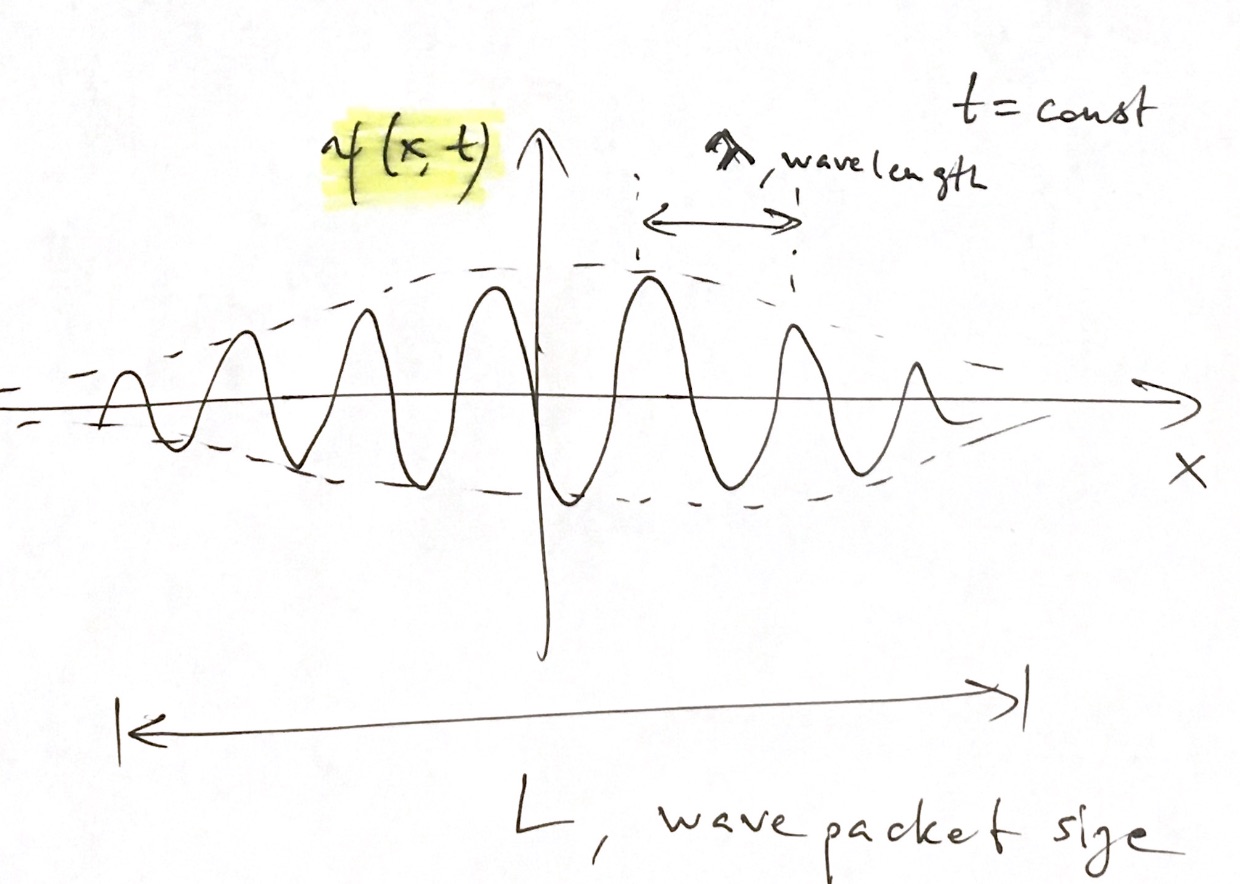 t = const
ψ(x, t)
λ, wavelength
x
L, wave packet size